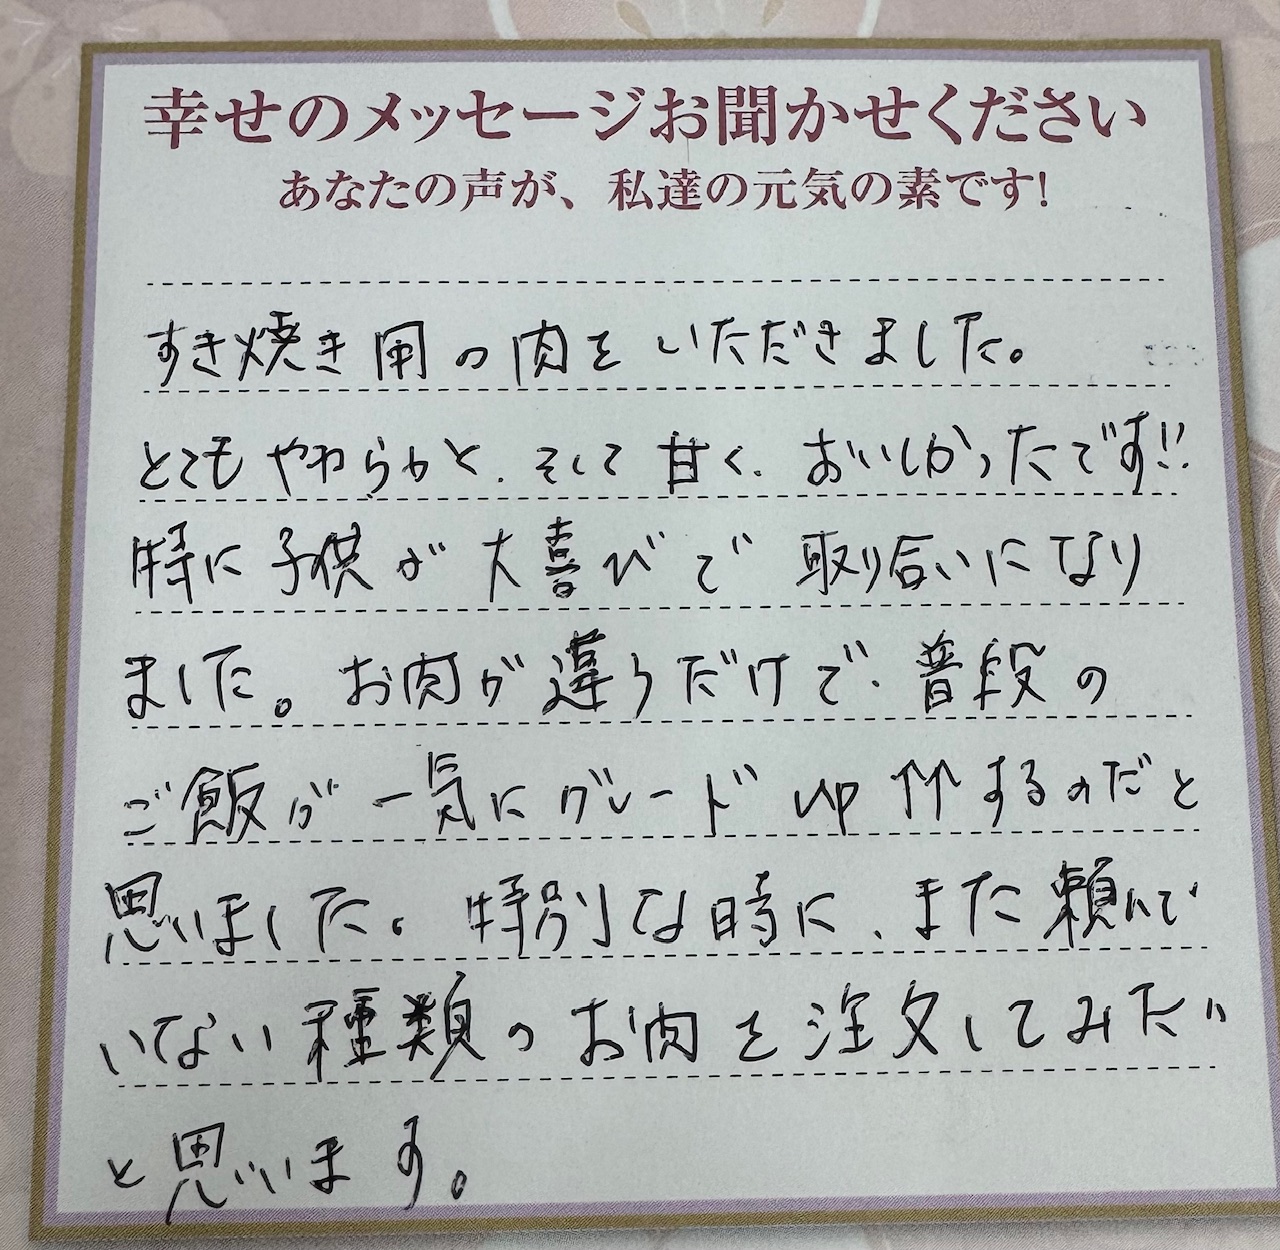 幸せのメッセージお聞かせください
あなたの声が、私達の元気の素です!
すき焼き用の肉をいただきました。
とてもやわらかく、そして甘く、おいしかったです!!
特に子供が大喜びで取り合いになり
ました。お肉が違うだけで、普段の
ご飯が一気にグレードup↑↑するのだと
思いました。特別な時に、まだ頼んで
いない種類のお肉を注文してみたい
と思います。